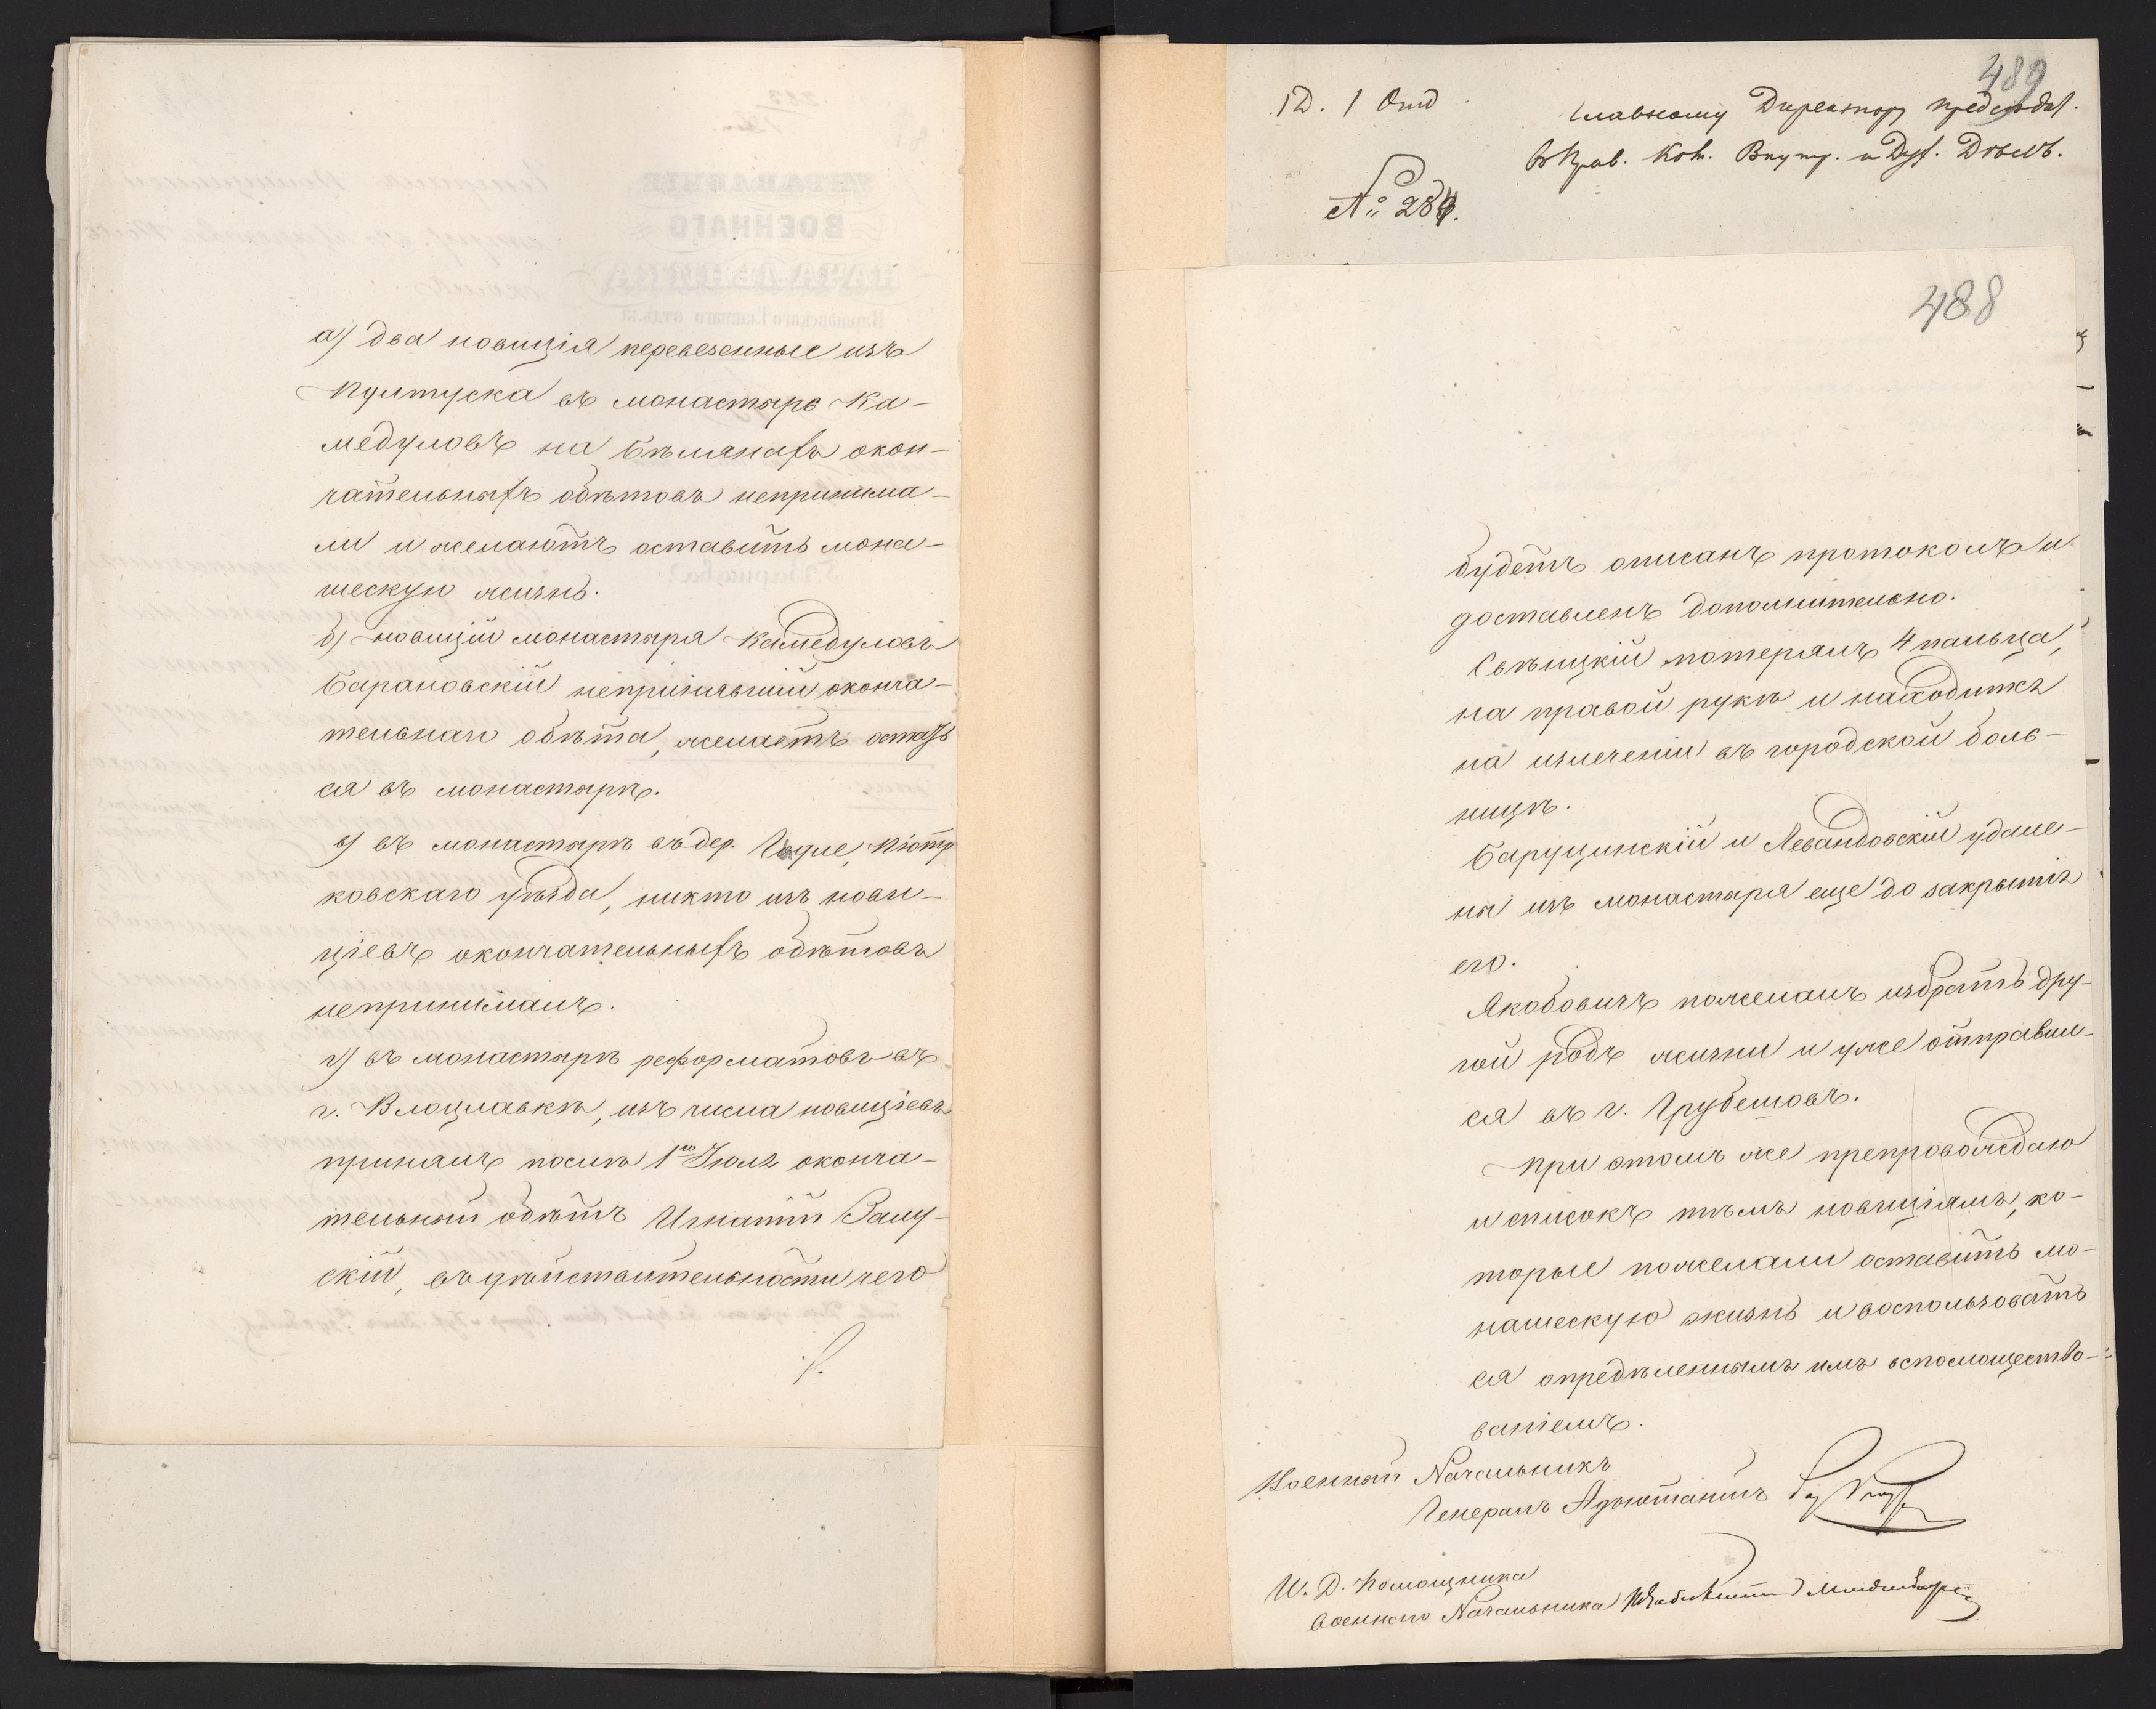 а) два новиція перевезенные изъ
Пултуска въ монастырь Ка-
медуловъ на Бѣлянахъ окон-
чательныхъ обѣтовъ непринима-
ли и желаютъ оставить мона-
шескую жизнь.
б) новицій монастыря Камедуловъ
Барановскій непринявшій оконча-
тельнаго обѣта, желаетъ остать
ся въ монастырѣ.
в) въ монастырѣ въ дер. Гидле, Піотр
ковскаго уѣзда, никто изъ нови-
ціевъ окончательныхъ обѣтовъ
непринималъ.
г) въ монастырѣ реформатовъ въ
г. Влоцлавкѣ, изъ числа новиціевъ
принялъ послѣ 1го Іюля оконча-
тельный обѣтъ Игнатій Залу-
скій, въ дѣйствительности чего
489
1 Д. 1 Отд
Главному Директору предсѣдат.
въ Прав. Ком. Внутр. и Дух. Дѣлъ.
№ 284.
488
будетъ описанъ протоколъ и
доставленъ дополнительно.
Свѣницкій потерялъ 4 пальца,
на правой рукѣ и находится
на излеченіи въ городской боль-
ницѣ.
Баруцинскій и Левандовскій удале-
ны изъ монастыря еще до закрытія
его.
Якобовичъ пожелалъ избрать дру-
гой родъ жизни и уже отправил-
ся въ г. Грубешовъ.
При этомъ же препровождаю
и списокъ тѣмъ новиціямъ, ко-
торые пожелали оставить мо-
нашескую жизнь и воспользовать
ся опредѣленнымъ имъ вспомощество-
ваніемъ.
Военный Начальникъ
Генералъ Адъютантъ
И. Д. Помощника
Военнаго Начальника